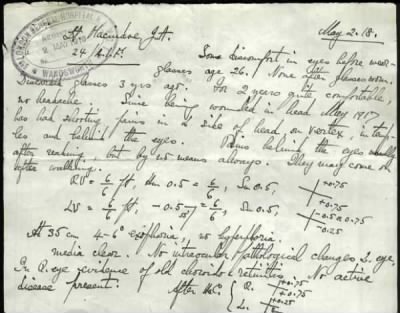 3RD LONDON GENERAL HOSPITAL
2 MAY 1918
WANDSWORTH
Lt. Macindoe, J.A. May 2. 18.
24 A.I.F.
Some discomfort in eyes before wear-
glasses age 26. None after glasses worn.
Discarded glasses 3 yrs ago. For 2 years quite comfortable,
no headache. Since being wounded in head May 1917
has had shooting pains in L side of head, on vertex, in temp-
les and behind the eyes. Pains behind the eyes usually
after reading, but by no means always. They may come on
after walking.
RV = 6/6 pt, Hm 0.5 = 6/6, Sn 0.5, +0.75
+0.75
LV = 6/6 pt, -0.5 = 6/6, Sn 0.5, -0.5 a 0.75
-0.25
At 35 cm 4-6° exophoria, no hyperphoria.
media clear. No intraocular pathological changes L. eye.
In R. eye evidence of old choroido retinitis. No active
disease present. After R. +0.75
+1.0
L. +0.25